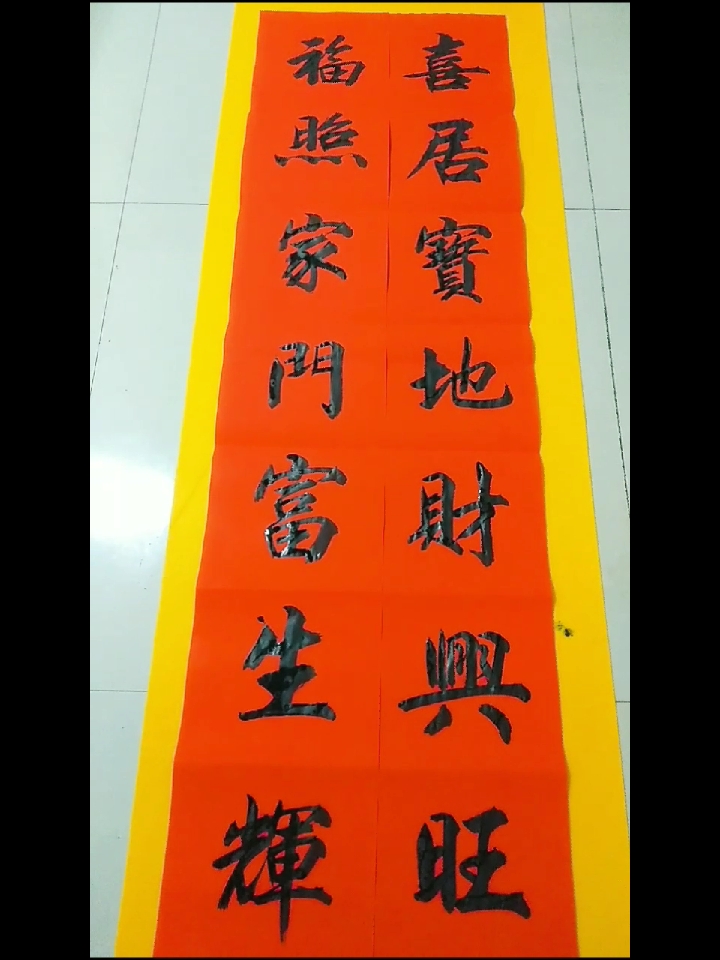 喜居寶地財興旺
福照家門富生輝